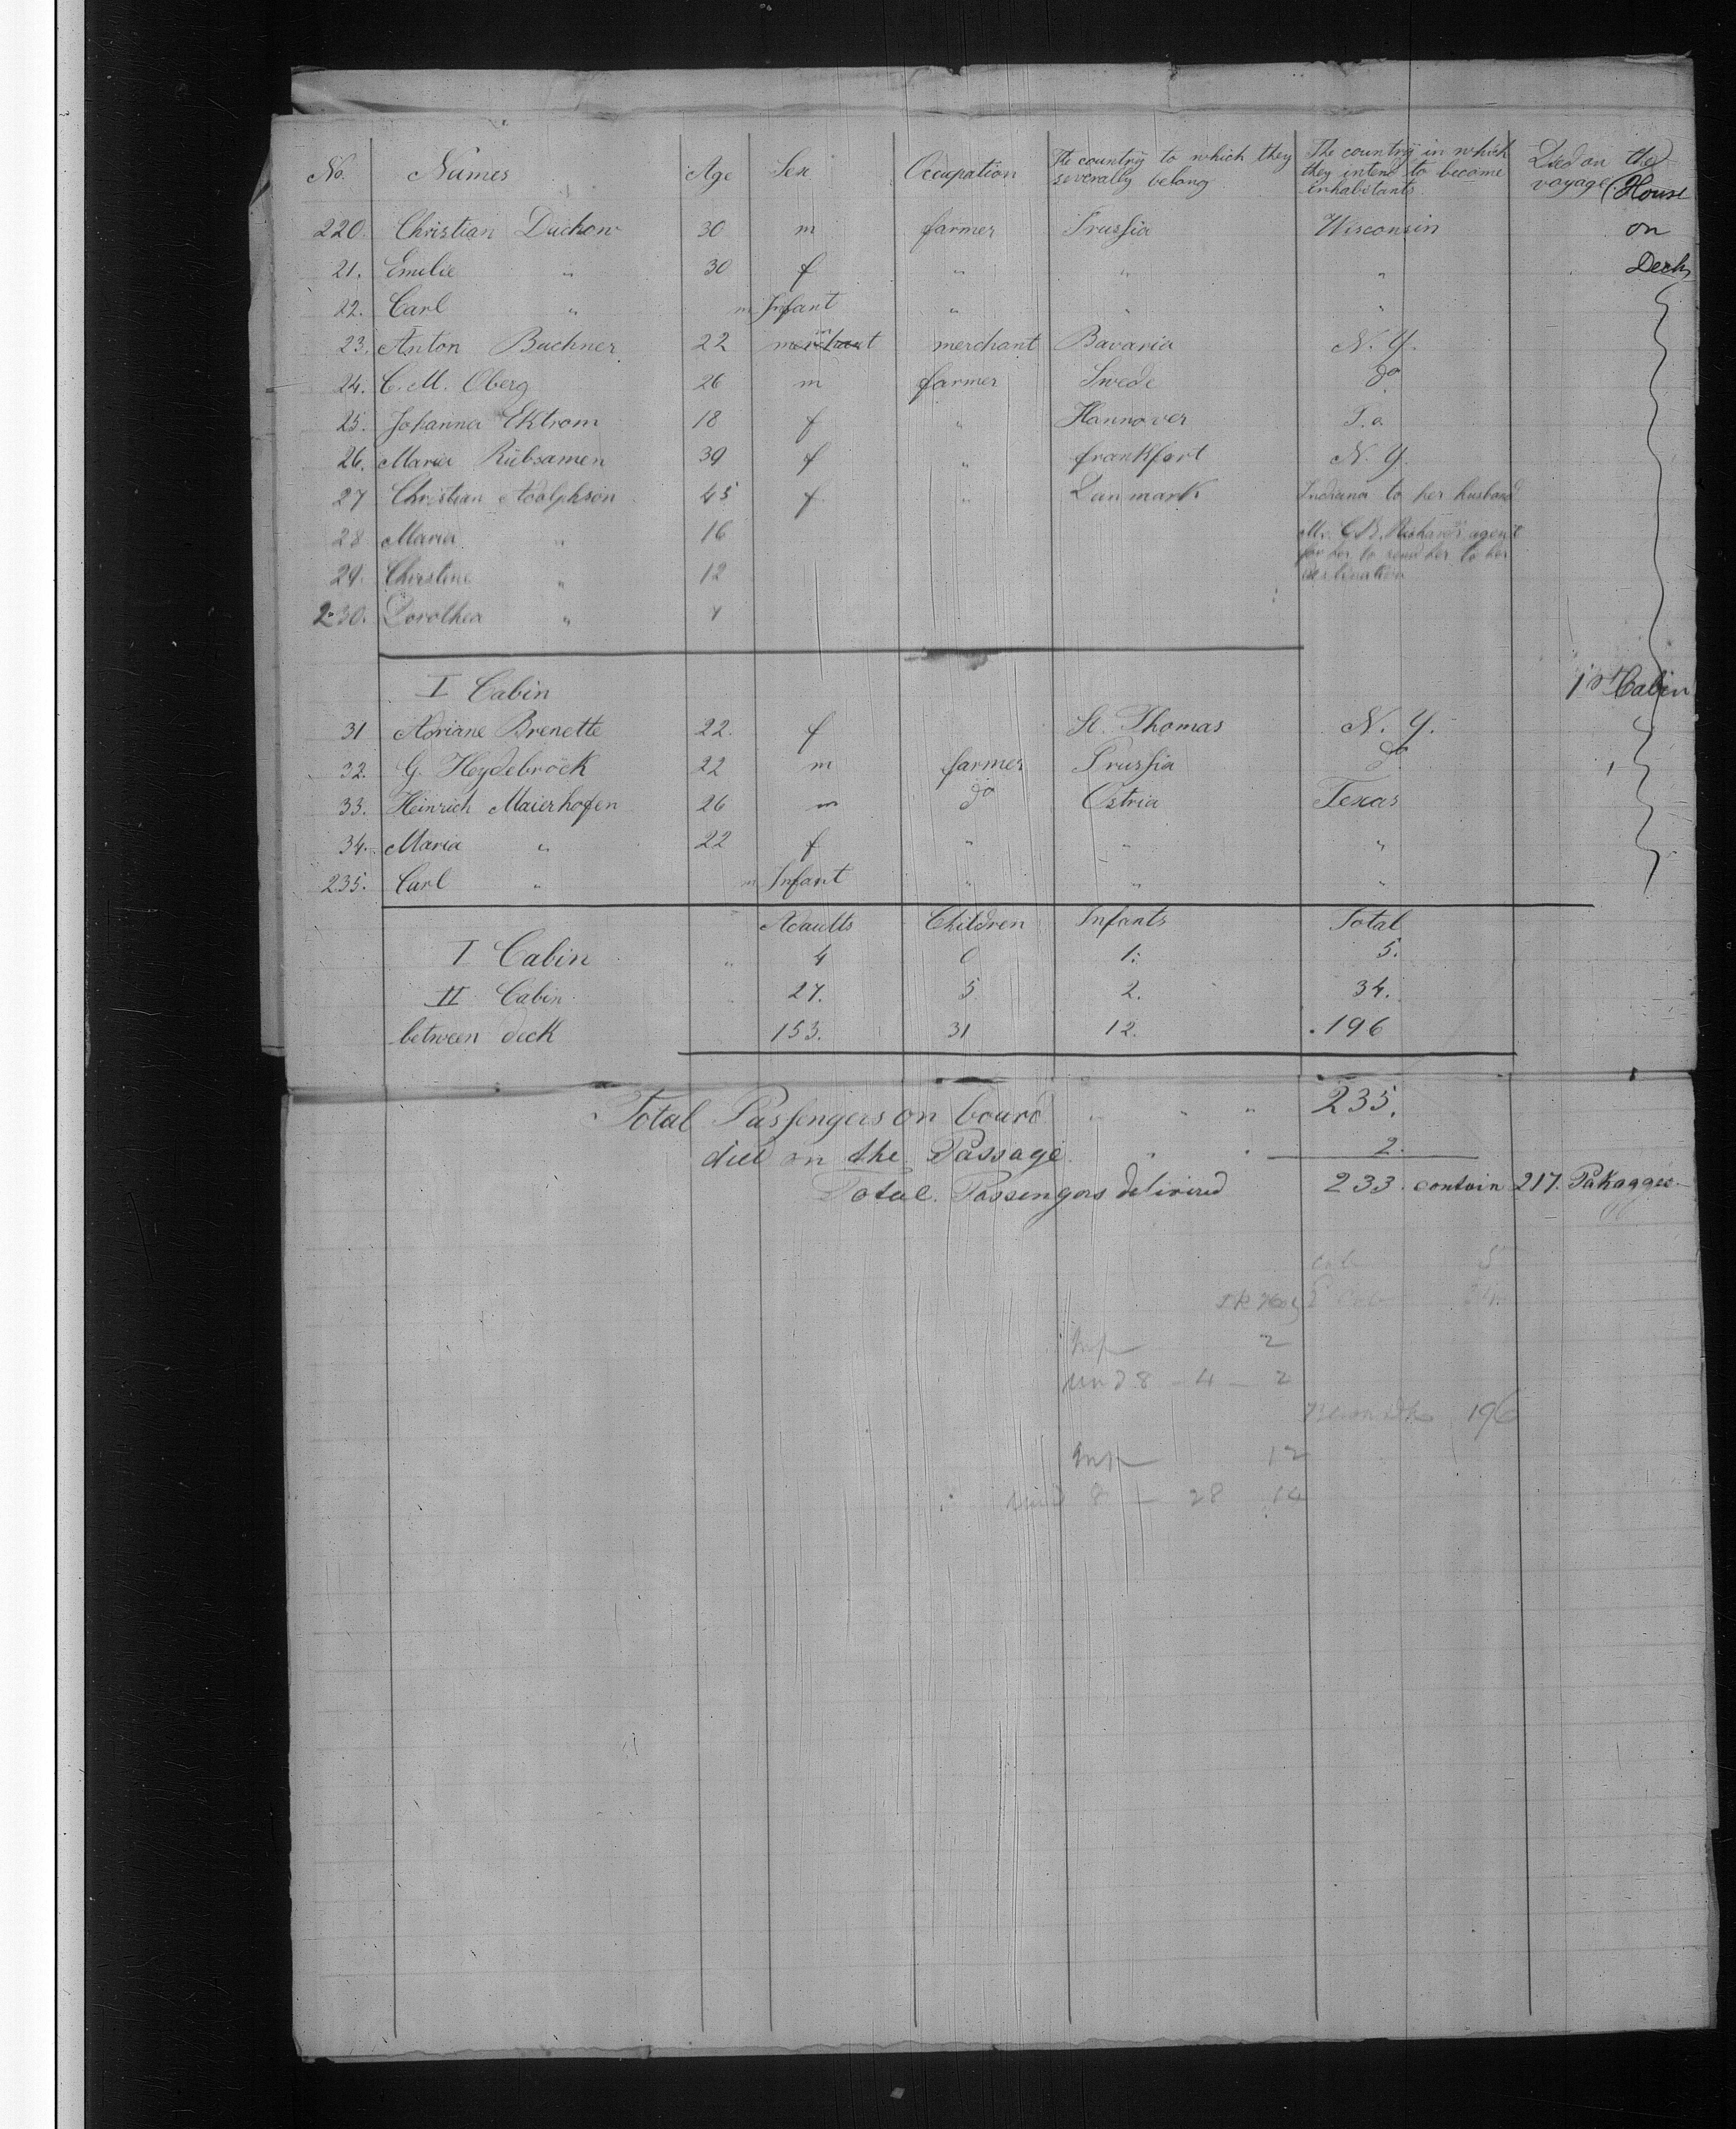 No. Names Age Sex Occupation The country to which they severally belong The country in which they intend to become inhabitants Died on the voyage (House
220. Christian Duckow 30 m farmer Prussia Wisconsin on
21. Emilie " 30 f " " " Deck
22. Carl " m Infant " " "
23. Anton Buchner 22 m merchant Bavaria N. Y.
24. C. M. Oberg 26 m farmer Swede do
25. Johanna Ektrom 18 f " Hannover
26. Maria Rübsamen 39 f " Frankfort N. Y.
27 Christian Adolphson 45 f " Danmark Indiana to her husband
28 Maria " 16 Mr. C.B. Richards agent
for her to send her to her
29. Christine " 12 destination
230. Dorothea " 7
I Cabin 1st Cabin
31 Adriane Brenette 22. f St. Thomas N. Y.
32. G. Heydebrock 22 m farmer Prussia do
33. Heinrich Maierhofen 26 m do Ostria Texas
34. Maria " 22 f " " "
235. Carl " m Infant " " "
Adaults Children Infants Total
I Cabin " 4 0 1. 5.
II Cabin 27. 5 2. 34.
between deck 153. 31 12. 196
Total Passengers on board " " " 235.
died on the Passage " " 2.
Total Passengers delivered 233. contain 217. Pakagges
Cab 5
2 Cab 34
Inf 2
und 8 - 4 - 2
196
Inf 12
und 8 - 28 14